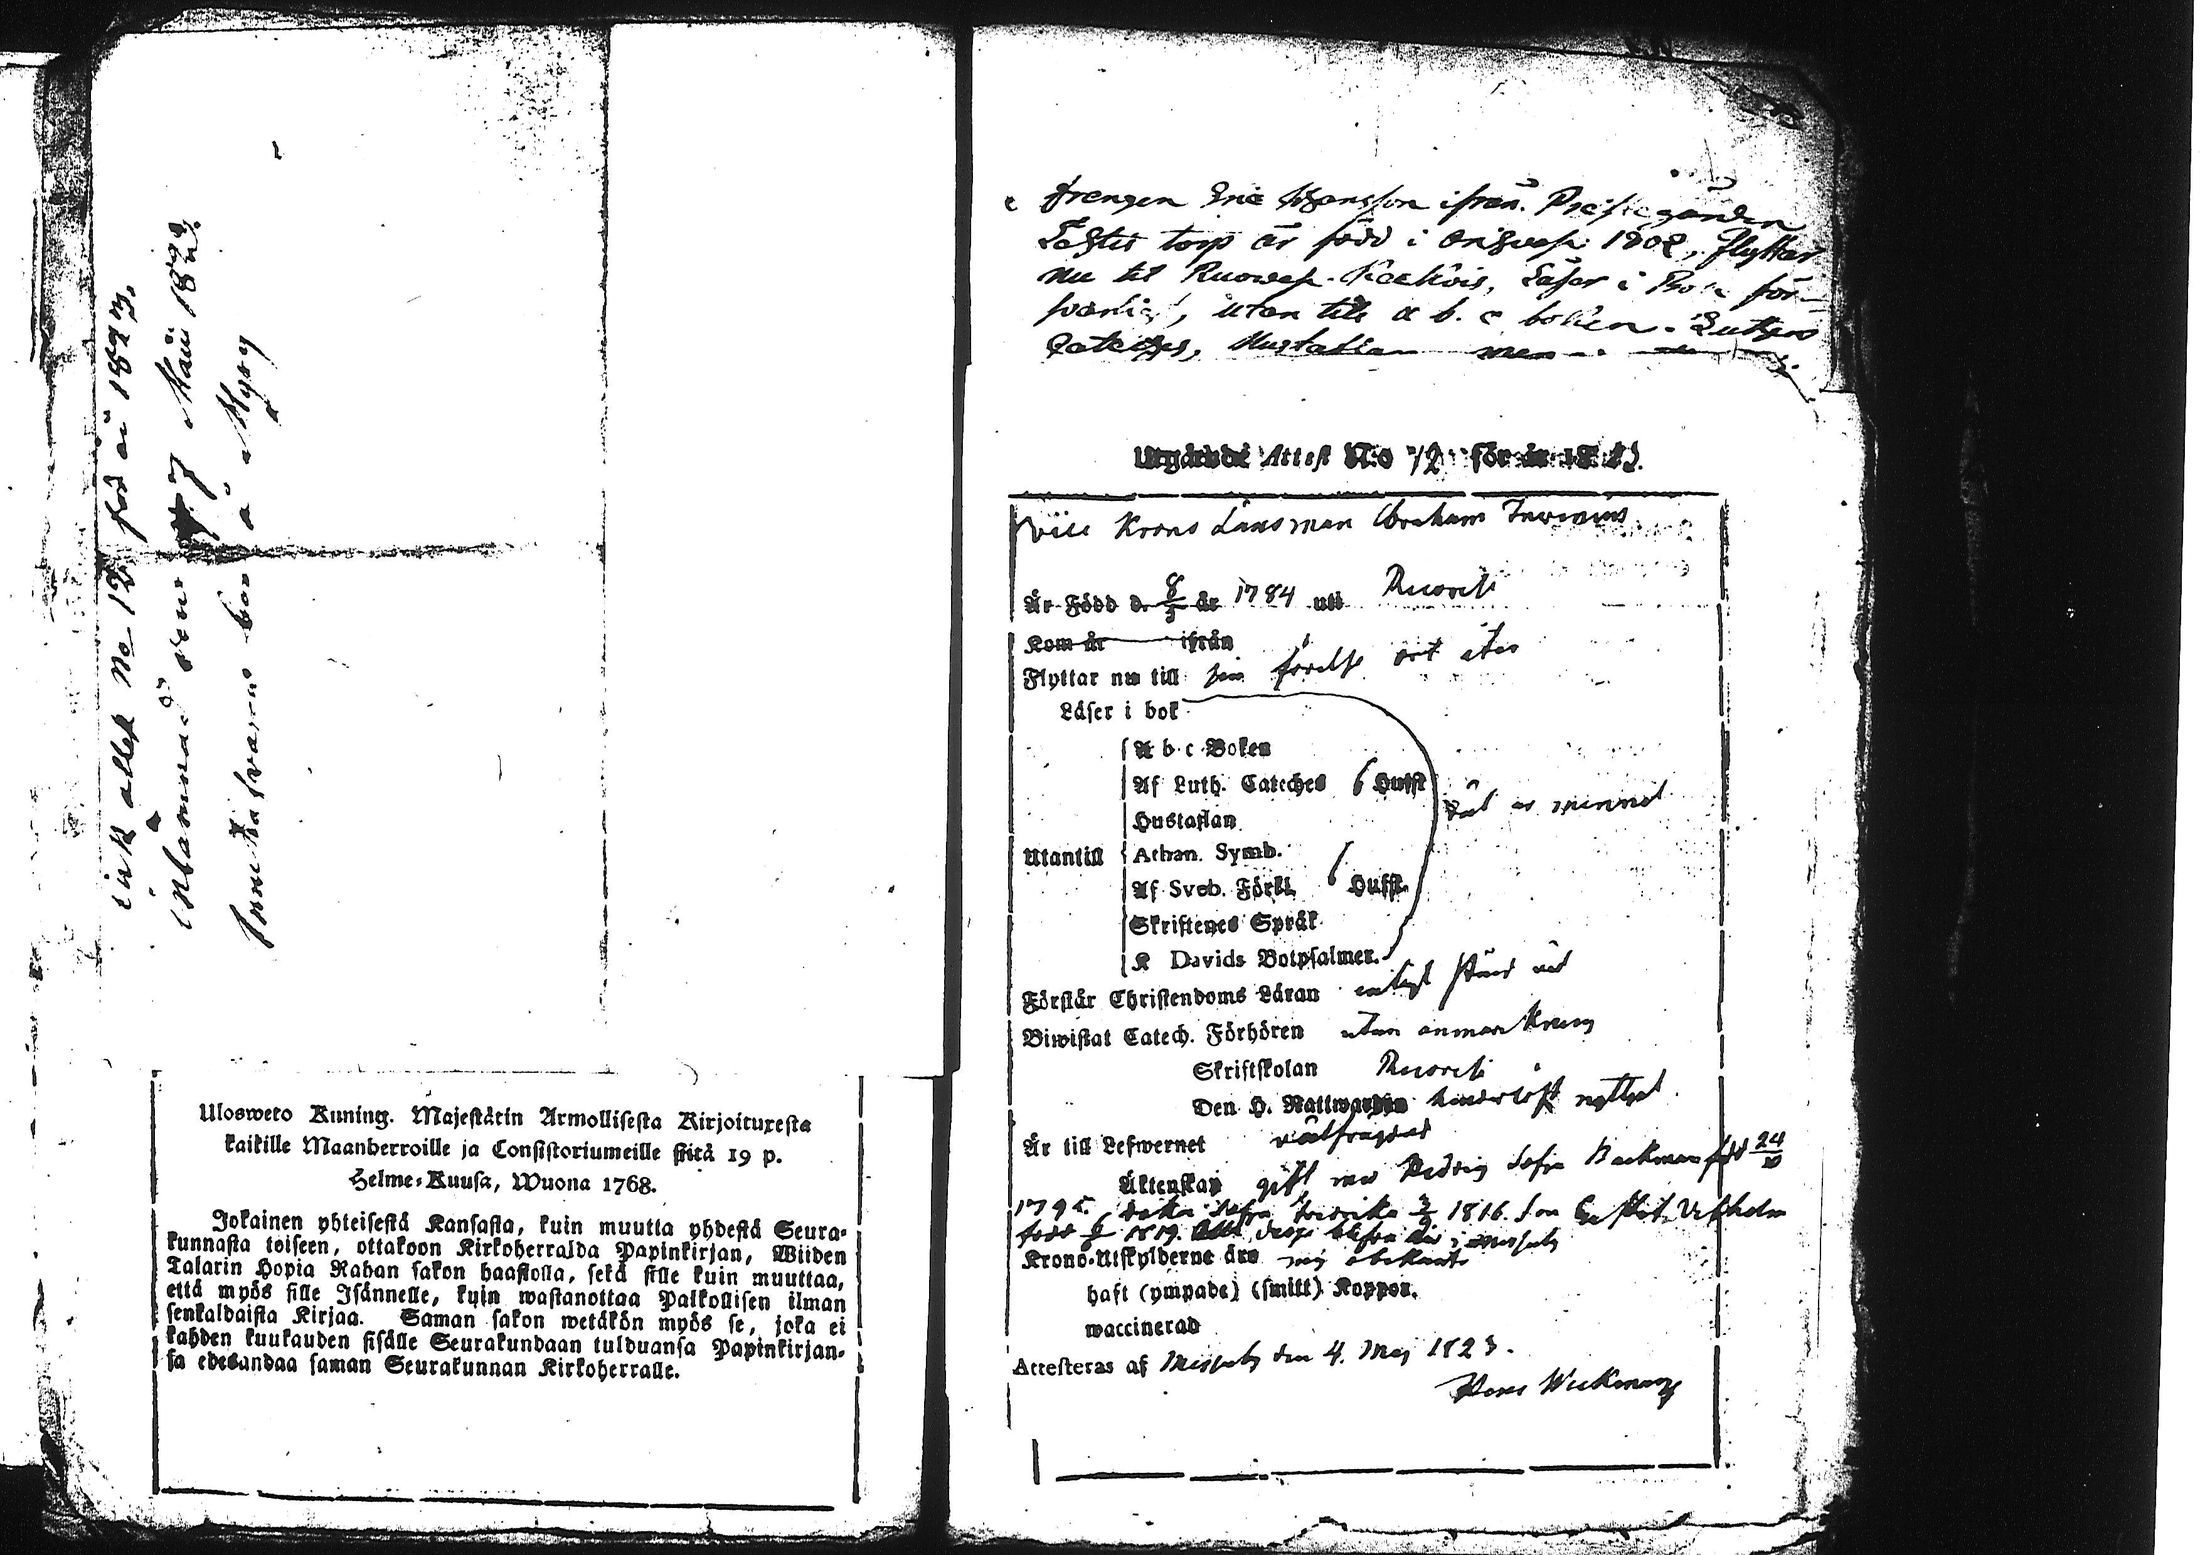 ink attest No 12 för år 1823.
inlämnad den 7 Maii 1823.
bor å Myry
Ulosweto Kuning. Majestätin Armollisesta Kirjoituxesta
kaikille Maanherroille ja Consistoriumeille siitä 19 p.
Helme-Kuusa, Wuona 1768.
Jokainen yhteisestä Kansasta, kuin muutta yhdestä Seura-
kunnasta toiseen, ottakoon Kirkoherralda Papinkirjan, Wiiden
Talarin Hopia Rahan sakon haastolla, sekä sille kuin muuttaa,
että myös sille Isännelle, kuin wastanottaa Palkollisen ilman
senkaldaista Kirjaa. Saman sakon wetäkön myös se, joka ei
kahden kuukauden sisälle Seurakundaan tulduansa Papinkirjan-
sa edesandaa saman Seurakunnan Kirkoherralle.
Drengen Eric ifrån Prestegården
torp är född i 1802, flyttar
nu til Ruowesi Läser i Bok för-
svarligt, utan till a b. c boken. Lutheri
Cateches, Hustaflan men
Utgående Attest No 12 för år 1823.
Vice Krono Länsman Abraham
Är Född d. 8/3 år 1784 uti Ruovesi
Kom år ifrån
Flyttar nu till sin födelse ort åter
Läser i bok
A b c Boken
Af Luth. Cateches 6 Hufst
Hustaflan
Utantill Athan. Symb.
väl ur minnet
Af Sveb. Förkl. 6 Hufst.
Skriftenes Språk
K Davids Botpsalmer.
Förstår Christendoms Läran enligt stånd
Biwistat Catech. Förhören utan anmärkning
Skriftskolan Ruovesi
Den H. Nattwarden nyttjat
Är till Lefwernet välfrägdad
Äktenskap gift med Hedvig Sofia Backman född 24/10
1795. Sofia Fredrika 3/2 1816. Son
född 1819.
Krono-Utskylderne äro mig obekante
haft (ympade) (smitt) Koppor.
waccinerad
Attesteras af Messuby den 4. Maj 1823.